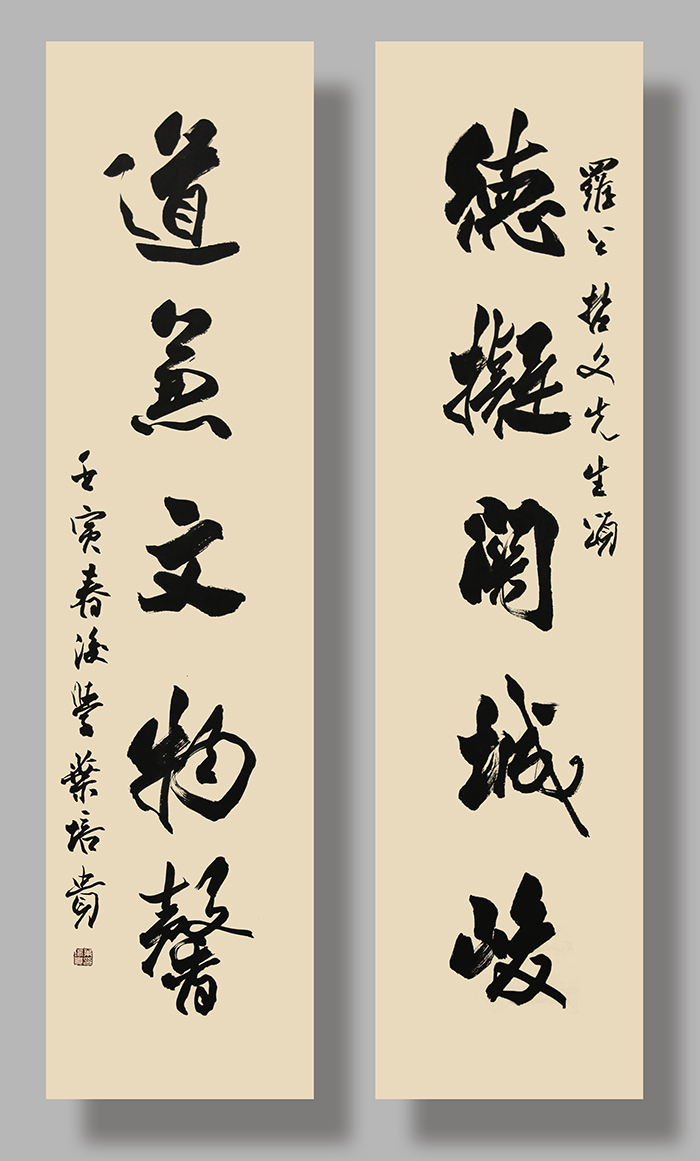 羅公哲文先生頌
德擬關城峻
道兼文物馨
壬寅春後學葉培貴